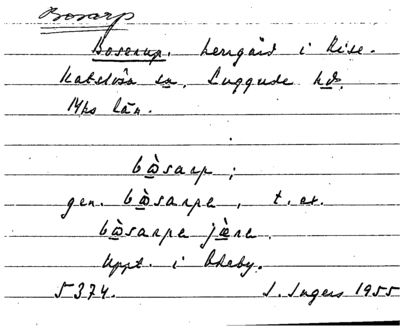 Bosarp
Boserup. herrgård i Rise.
Katslösa sn, Luggude hd.
Mhs län.
bo̲̊̀sarp;
gen. bo̲̊̀sarpa, t. ex.
bo̲̊̀sarpa jɷ̲̀ra.
Uppt. i Ekeby.
5374. I. Ingers 1955